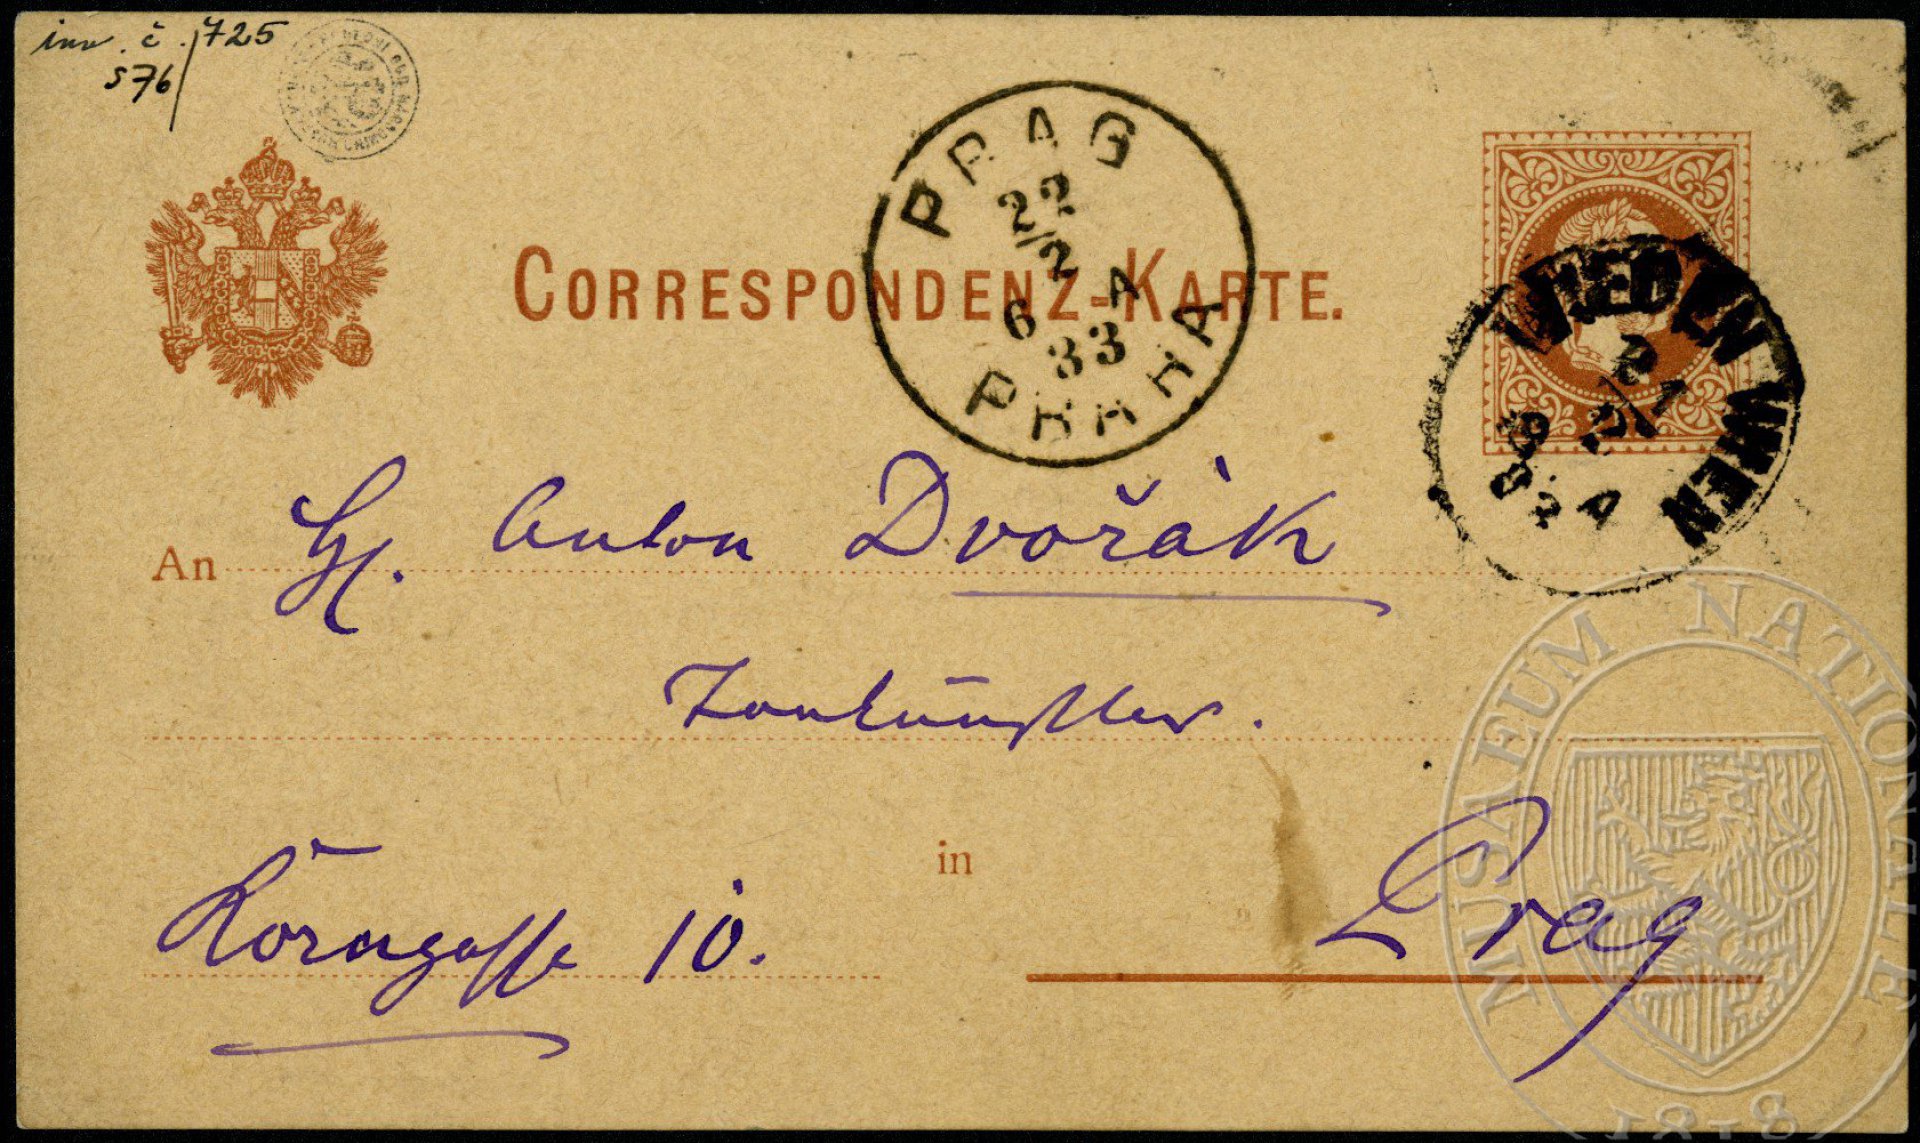 inv. č. 725
S76
CORRESPONDENZ-KARTE.
PRAG
22
2/2
6 A
83
PRAHA
WIEDEN WIEN
An H. Anton Dvořák
Tonkünstler.
Körngasse 10. in Prag
MUSAEUM NATIONALE
1818